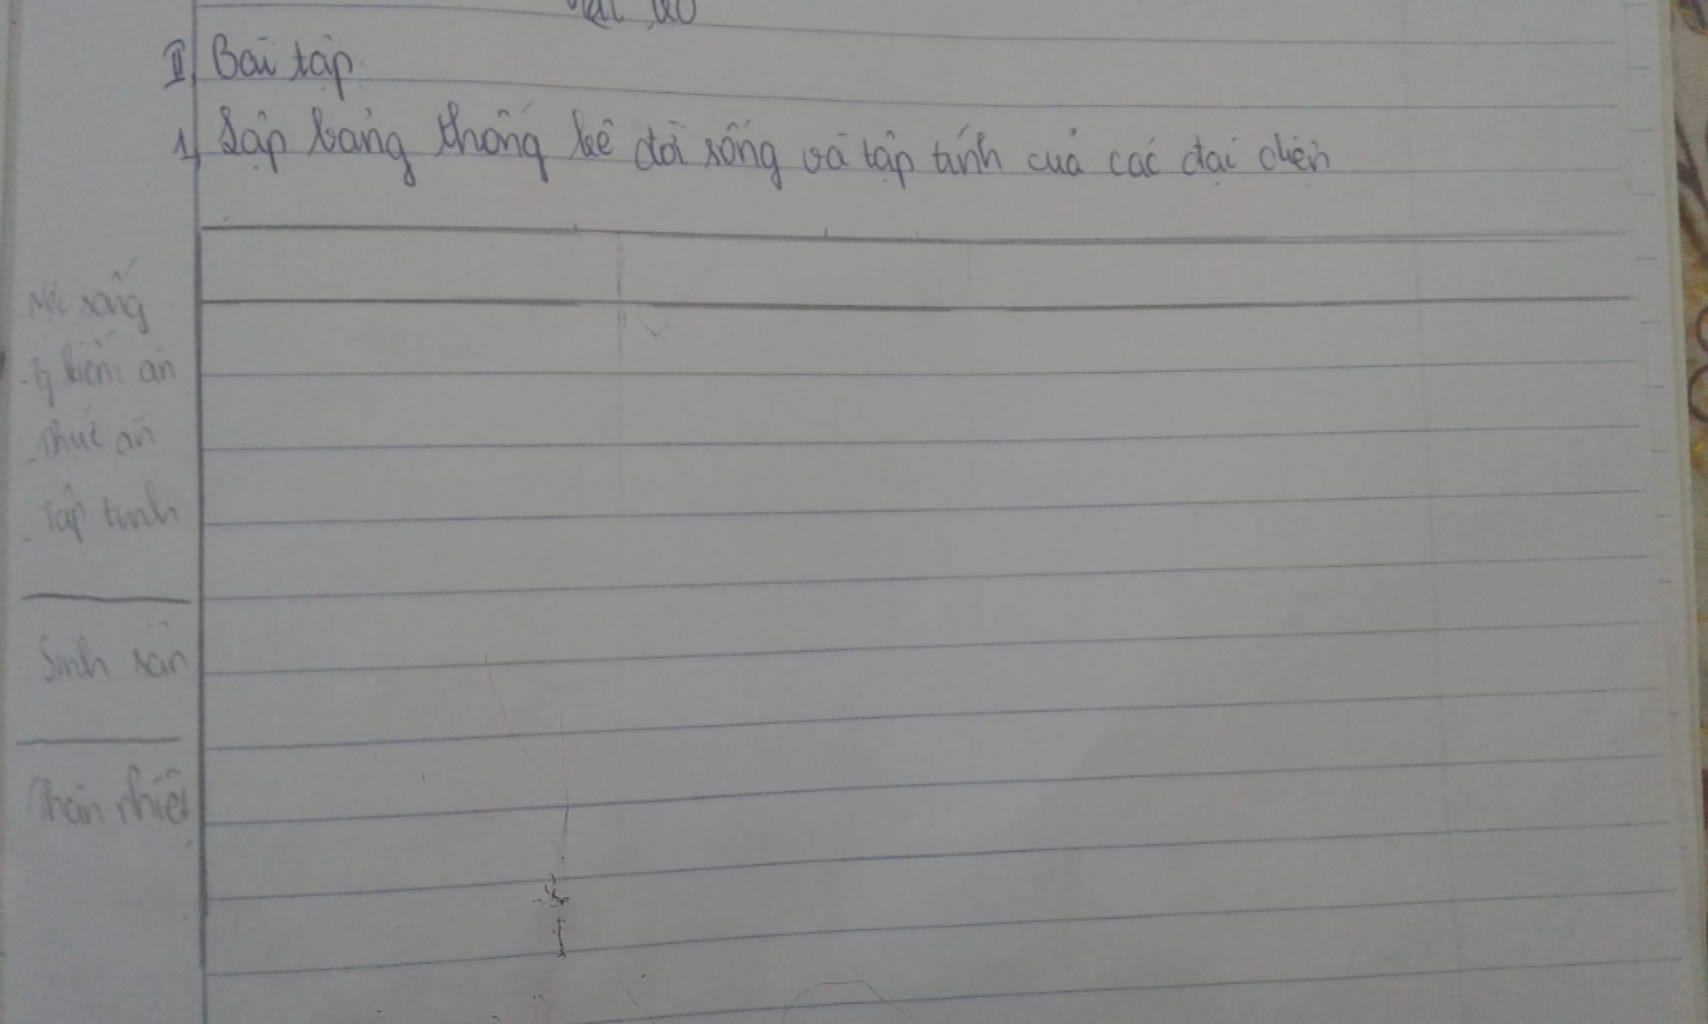 II, Bài tập
1, Lập bảng thống kê đời sống và tập tính của các đại diện
Nơi sống
- T kiếm ăn
- Thức ăn
- Tập tính
Sinh sản
Thân nhiệt